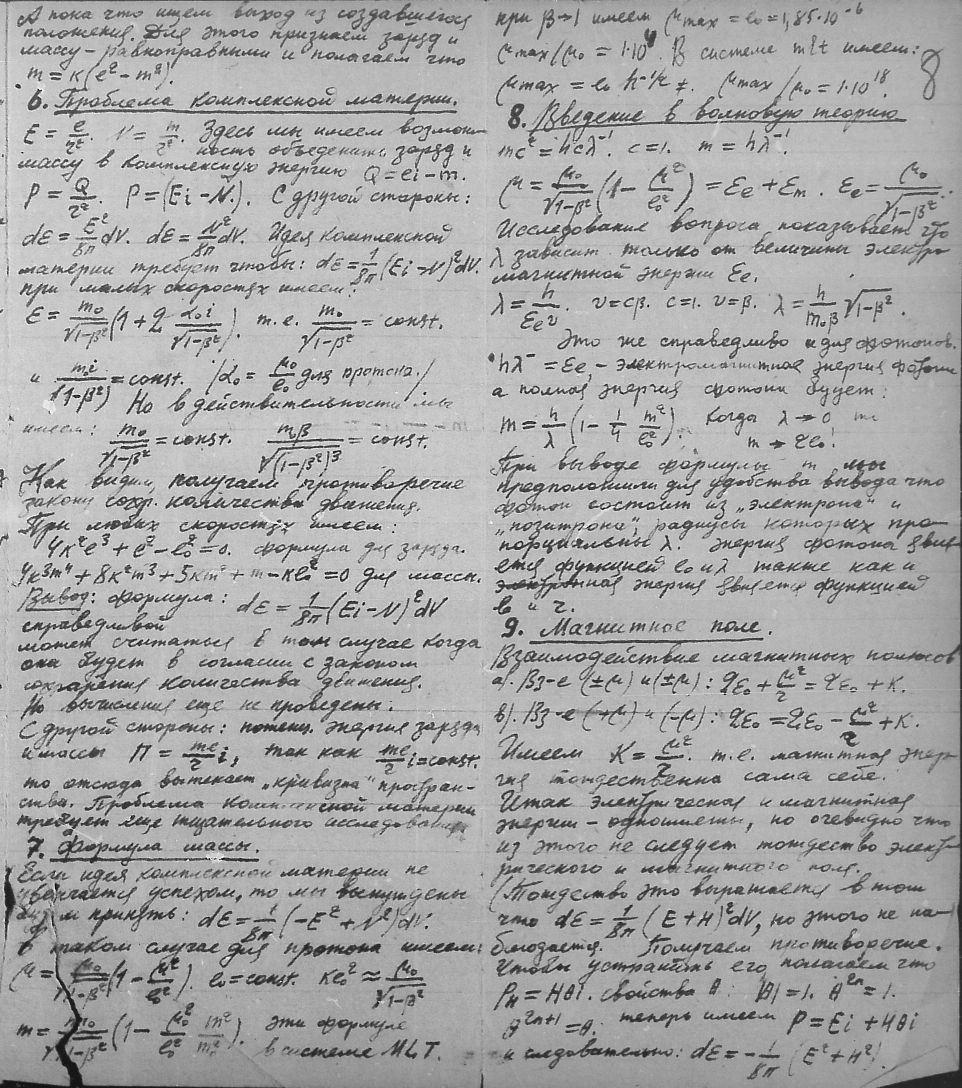 А пока что ищем выход из создавшегося
положения. Для этого признаем заряд и
массу - равноправными и полагаем что
m = k(e² - m²).
6. Проблема комплексной материи.
E = e/r². N = m/r². Здесь мы имеем возмож-
ность объеденить заряд и
массу в комплексную энергию Q = ei - m.
P = Q/r². P = (Ei - N). С другой стороны:
dE = E²/8π dV. dE = N²/8π dV. Идея комплексной
материи требует чтобы: dE = 1/8π (Ei - N)² dV.
при малых скоростях имеем:
E = m₀/√1-β² (1 + 2 α₀i/√1-β²). т.е. m₀/√1-β² = const.
и m₀i/√(1-β²) = const. /α₀ = μ₀/e₀ для протона./
Но в действительности мы
имеем: m₀/√1-β² = const. m₀β/√(1-β²)³ = const.
Как видим, получаем противоречие
закону сохр. количества движения.
При любых скоростях имеем:
4k²e³ + e² - e₀² = 0. формула для заряда.
4k³m⁴ + 8k²m³ + 5km² + m - ke₀² = 0 для массы.
Вывод: формула: dE = 1/8π (Ei - N)² dV
справедливой
может считаться в том случае когда
она будет в согласии с законом
сохранения количества движения.
Но вычисления еще не проведены.
С другой стороны: потенц. энергия заряда
и массы П = me/r i, так как me/r i = const.
то отсюда вытекает "кривизна" простран-
ства. Проблема комплексной материи
требует еще тщательного исследования
7. Формула массы.
Если идея комплексной материи не
увенчается успехом, то мы вынуждены
принять: dE = 1/8π (-E² + N²) dV.
в таком случае для протона имеем:
μ = μ₀/√1-β² (1 - μ²/e₀²). e₀ = const. ke₀² ≈ μ₀/√1-β²
m = m₀/√1-β² (1 - μ₀²/e₀² m²/m₀²). эти формуле
в системе MLT.
при β→1 имеем μmax = e₀ = 1,85·10⁻⁶
μmax/μ₀ = 1·10¹⁸. В системе mlt имеем:
μmax = e₀ μmax/μ₀ = 1·10¹⁸.
8
8. Введение в волновую теорию
mc² = hcλ⁻¹. c = 1. m = hλ⁻¹.
μ = μ₀/√1-β² (1 - μ²/e₀²) = Ee + Em. Ee = μ₀/√1-β².
Исследование вопроса показывает что
λ зависит только от величины электро
магнитной энергии Ee.
λ = h/Eeυ. υ = cβ. c = 1. υ = β. λ = h/m₀β √1-β².
Это же справедливо и для фотонов.
hλ⁻ = Ee, - электромагнитная энергия фотона
а полная энергия фотона будет:
m = h/λ (1 - 1/4 m²/e₀²). Когда λ → 0
m → 2e₀!
При выводе формулы m мы
предположили для удобства вывода что
фотон состоит из "электрона" и
"позитрона", радиусы которых про-
порциальны λ. Энергия фотона явля
ется функцией e₀ и λ также как и
энергия является функцией
e₀ и r.
9. Магнитное поле.
Взаимодействие магнитных полюсов
а). Вз-е (±μ) и (±μ): 2E₀ + μ²/r = 2E₀ + K.
в). Вз-е (+μ) и (-μ): 2E₀ = 2E₀ - μ²/r + K.
Имеем K = μ²/r. т.е. магнитная энер-
гия тождественна сама себе.
Итак электрическая и магнитная
энергии - одноименны, но очевидно что
из этого не следует тождество элект-
рического и магнитного поля.
(Тождество это выражается в том
что dE = 1/8π (E + H)² dV, но этого не на-
блюдается. Получаем противоречие.
Чтобы устранить его, полагаем что
Pн = Hθi. свойства θ: |θ| = 1. θ²ⁿ = 1.
θ²ⁿ⁺¹ = θ. теперь имеем P = Ei + Hθi
и следовательно: dE = -1/8π (E² + H²)